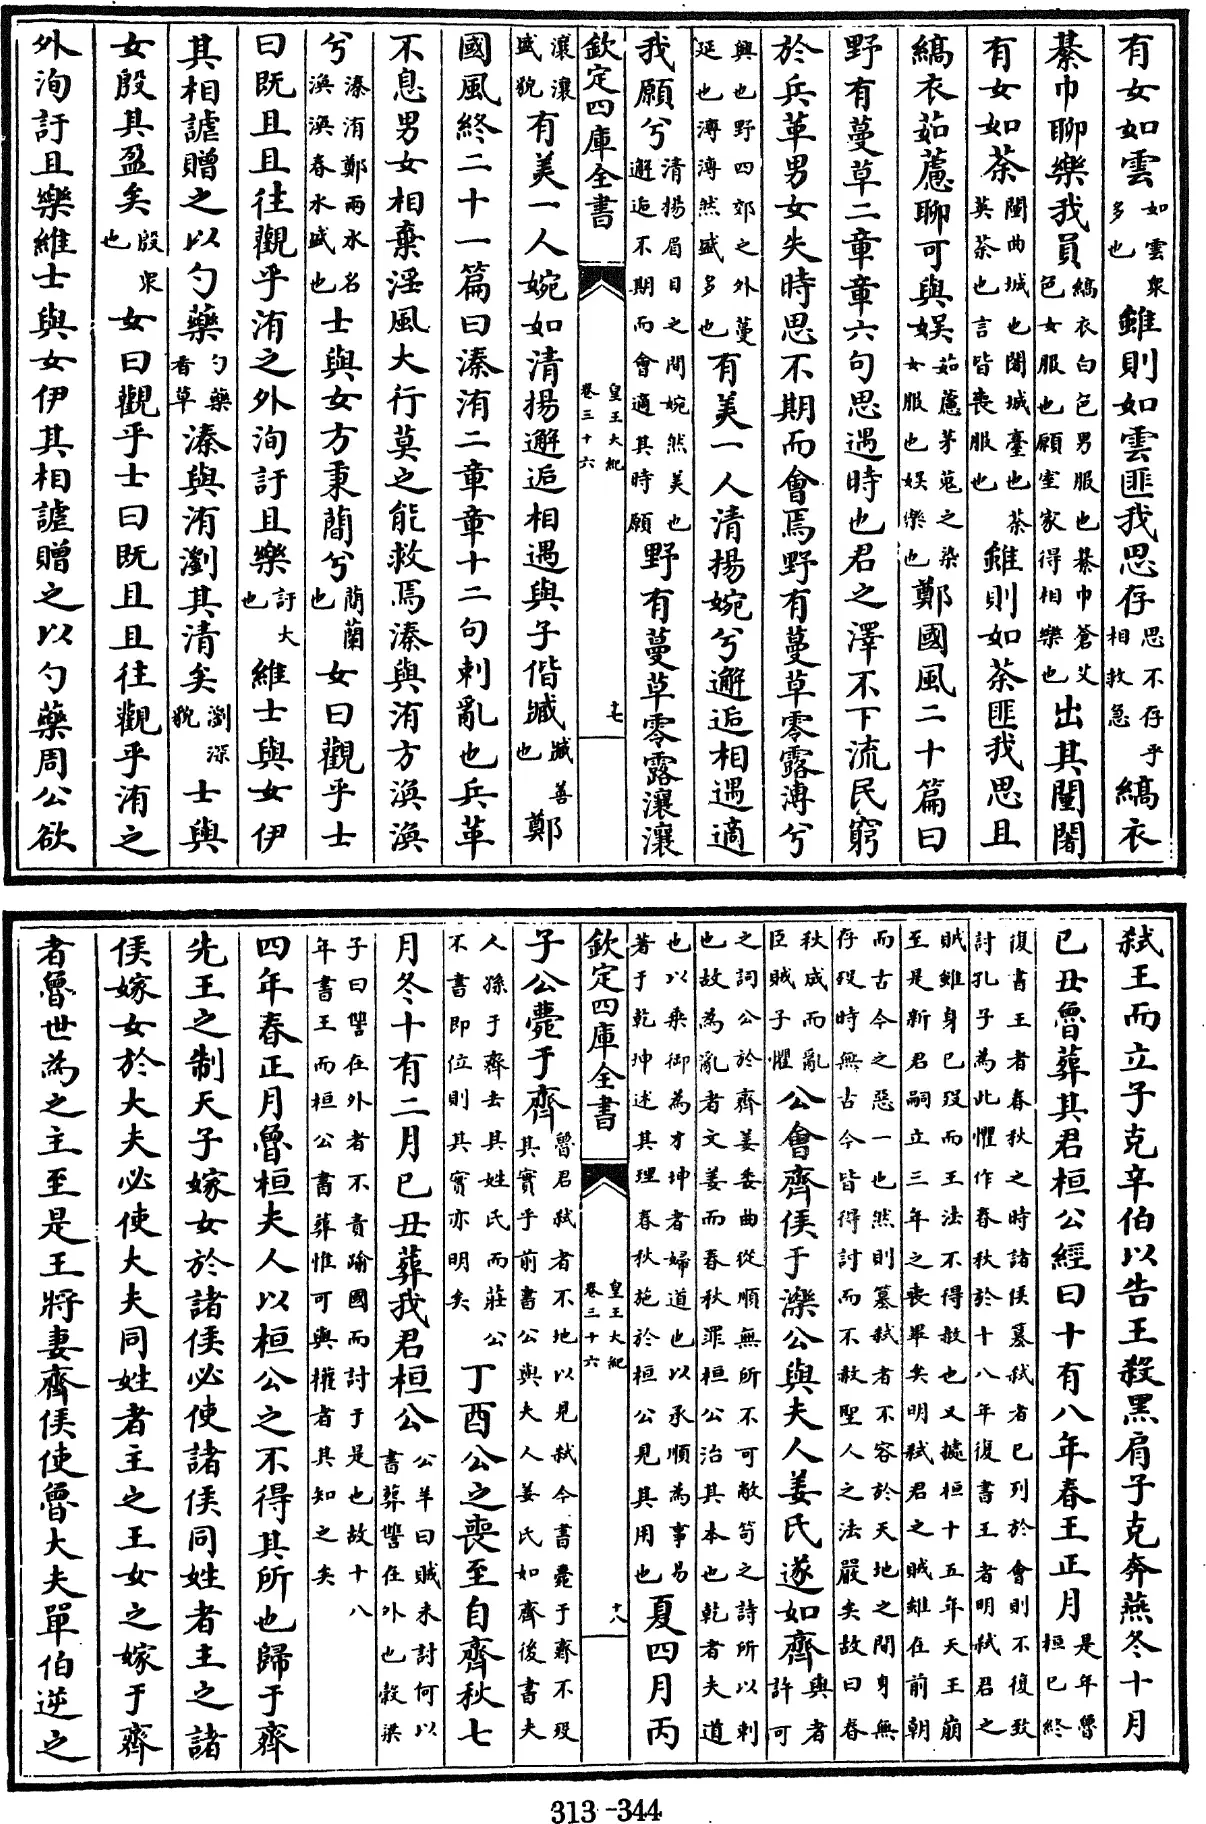 有女如雲如雲衆多也雖則如雲匪我思存思不存乎相救急縞衣
綦巾聊樂我員縞衣白色男服也綦巾蒼艾色女服也願室家得相樂也出其闉闍
有女如荼闉曲城也闍城臺也荼英荼也言皆喪服也雖則如荼匪我思且
縞衣茹藘聊可與娛茹藘茅蒐之染女服也娛樂也鄭國風二十篇曰
野有蔓草二章章六句思遇時也君之澤不下流民窮
於兵革男女失時思不期而會焉野有蔓草零露漙兮
興也野四郊之外蔓延也漙漙然盛多也有美一人清揚婉兮邂逅相遇適
我願兮清揚眉目之間婉然美也邂逅不期而會適其時願野有蔓草零露瀼瀼
欽定四庫全書 皇王大紀 卷三十六 十七
瀼瀼盛貌有美一人婉如清揚邂逅相遇與子偕臧臧善也鄭
國風終二十一篇曰溱洧二章章十二句刺亂也兵革
不息男女相棄淫風大行莫之能救焉溱與洧方渙渙
兮溱洧鄭兩水名渙渙春水盛也士與女方秉蕑兮蕑蘭也女曰觀乎士
曰既且且往觀乎洧之外洵訏且樂訏大也維士與女伊
其相謔贈之以勺藥勺藥香草溱與洧瀏其清矣瀏深貌士與
女殷其盈矣殷衆也女曰觀乎士曰既且且往觀乎洧之
外洵訏且樂維士與女伊其相謔贈之以勺藥周公欲
弑王而立子克辛伯以告王殺黑肩子克奔燕冬十月
己丑魯葬其君桓公經曰十有八年春王正月是年魯桓已終
復書王者春秋之時諸侯篡弑者已列於會則不復致討孔子為此懼作春秋於十八年復書王者明弑君之
賊雖身已殁而王法不得赦也又據桓十五年天王崩至是新君嗣立三年之喪畢矣明弑君之賊雖在前朝
而古今之惡一也然則篡弑者不容於天地之間身無存殁時無古今皆得討而不赦聖人之法嚴矣故曰春
秋成而亂臣賊子懼公會齊侯于濼公與夫人姜氏遂如齊與者許可
之詞公於齊姜委曲從順無所不可敝笱之詩所以刺也故為亂者文姜而春秋罪桓公治其本也乾者夫道
也以乘御為才坤者婦道也以承順為事易著于乾坤述其理春秋施於桓公見其用也夏四月丙
欽定四庫全書 皇王大紀 卷三十六 十八
子公薨于齊魯君弑者不地以見弑今書薨于齊不没其實乎前書公與夫人姜氏如齊後書夫
人孫于齊去其姓氏而莊公不書即位則其實亦明矣丁酉公之喪至自齊秋七
月冬十有二月己丑葬我君桓公公羊曰賊未討何以書葬讐在外也穀梁
子曰讐在外者不責踰國而討于是也故十八年書王而桓公書葬惟可與權者其知之矣
四年春正月魯桓夫人以桓公之不得其所也歸于齊
先王之制天子嫁女於諸侯必使諸侯同姓者主之諸
侯嫁女於大夫必使大夫同姓者主之王女之嫁于齊
者魯世為之主至是王將妻齊侯使魯大夫單伯逆之
313-344